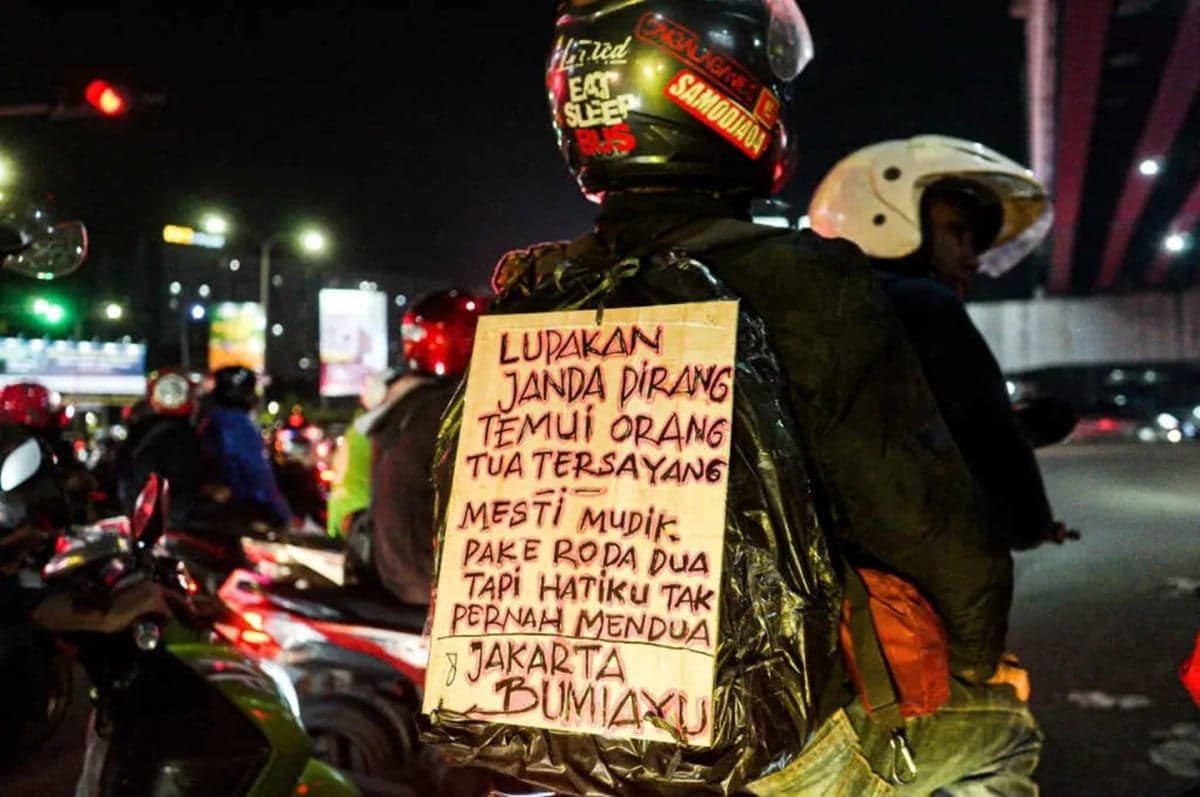 Limited
EAT
SLEEP
BUS
SAMODJO04
LUPAKAN
JANDA DIRANG
TEMUI ORANG
TUA TERSAYANG
MESTI MUDIK
PAKE RODA DUA
TAPI HATIKU TAK
PERNAH MENDUA
JAKARTA
BUMIAYU